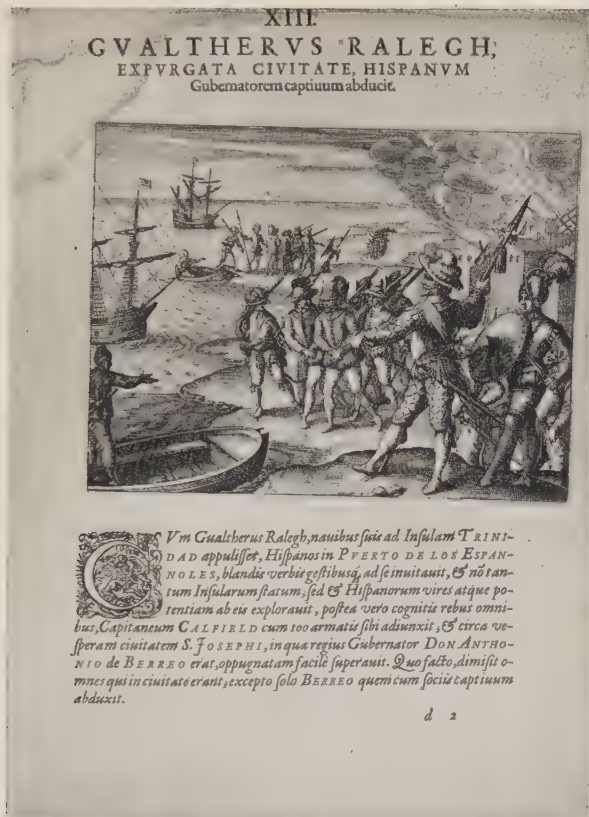 XIII.
GVALTHERVS RALEGH,
EXPVRGATA CIVITATE, HISPANVM
Gubernatorem captiuum abducit.
CVm Gualtherus Ralegh, nauibus suis ad Insulam TRINI-
DAD appulisset, Hispanos in PVERTO DE LOS ESPAN-
NOLES, blandis verbis gestibusq́; ad se inuitauit, & nõ tan-
tum Insularum statum, sed & Hispanorum vires atque po-
tentiam ab eis explorauit, postea vero cognitis rebus omni-
bus, Capitaneum CALFIELD cum 100 armatis sibi adiunxit, & circa ve-
speram ciuitatem S. JOSEPHI, in qua regius Gubernator DON ANTHO-
NIO de BERREO erat, oppugnatam facilè superauit. Quo facto, dimisit o-
mnes qui in ciuitate erant, excepto solo BERREO quem cum sociis captiuum
abduxit.
d 2